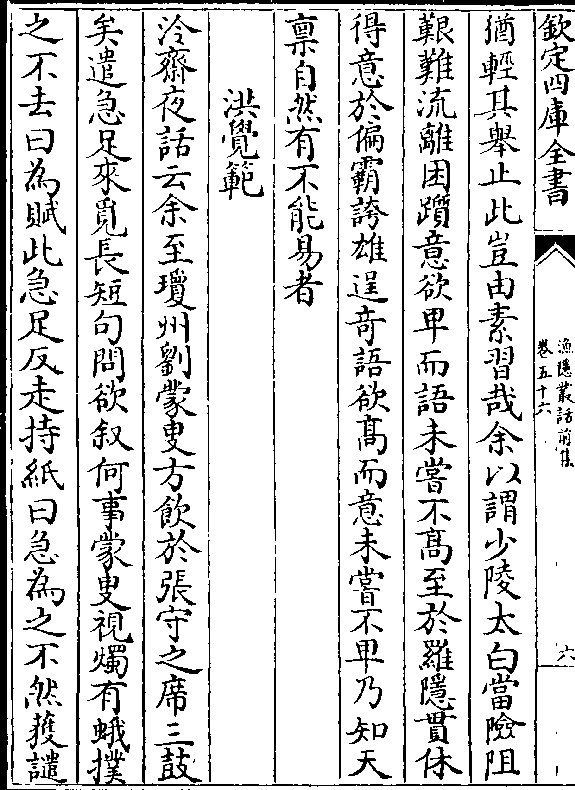 欽定四庫全書
漁隱叢話前集
卷五十六
六
猶輕其舉止此豈由素習哉余以謂少陵太白當險阻
艱難流離困躓意欲卑而語未嘗不髙至於羅隱貫休
得意於偏霸誇雄逞奇語欲髙而意未嘗不卑乃知天
禀自然有不能易者
洪覺範
泠齋夜話云余至瓊州劉蒙叟方飲於張守之席三鼓
矣遣急足來覓長短句問欲叙何事蒙叟視燭有蛾撲
之不去曰為賦此急足反走持紙曰急為之不然獲譴